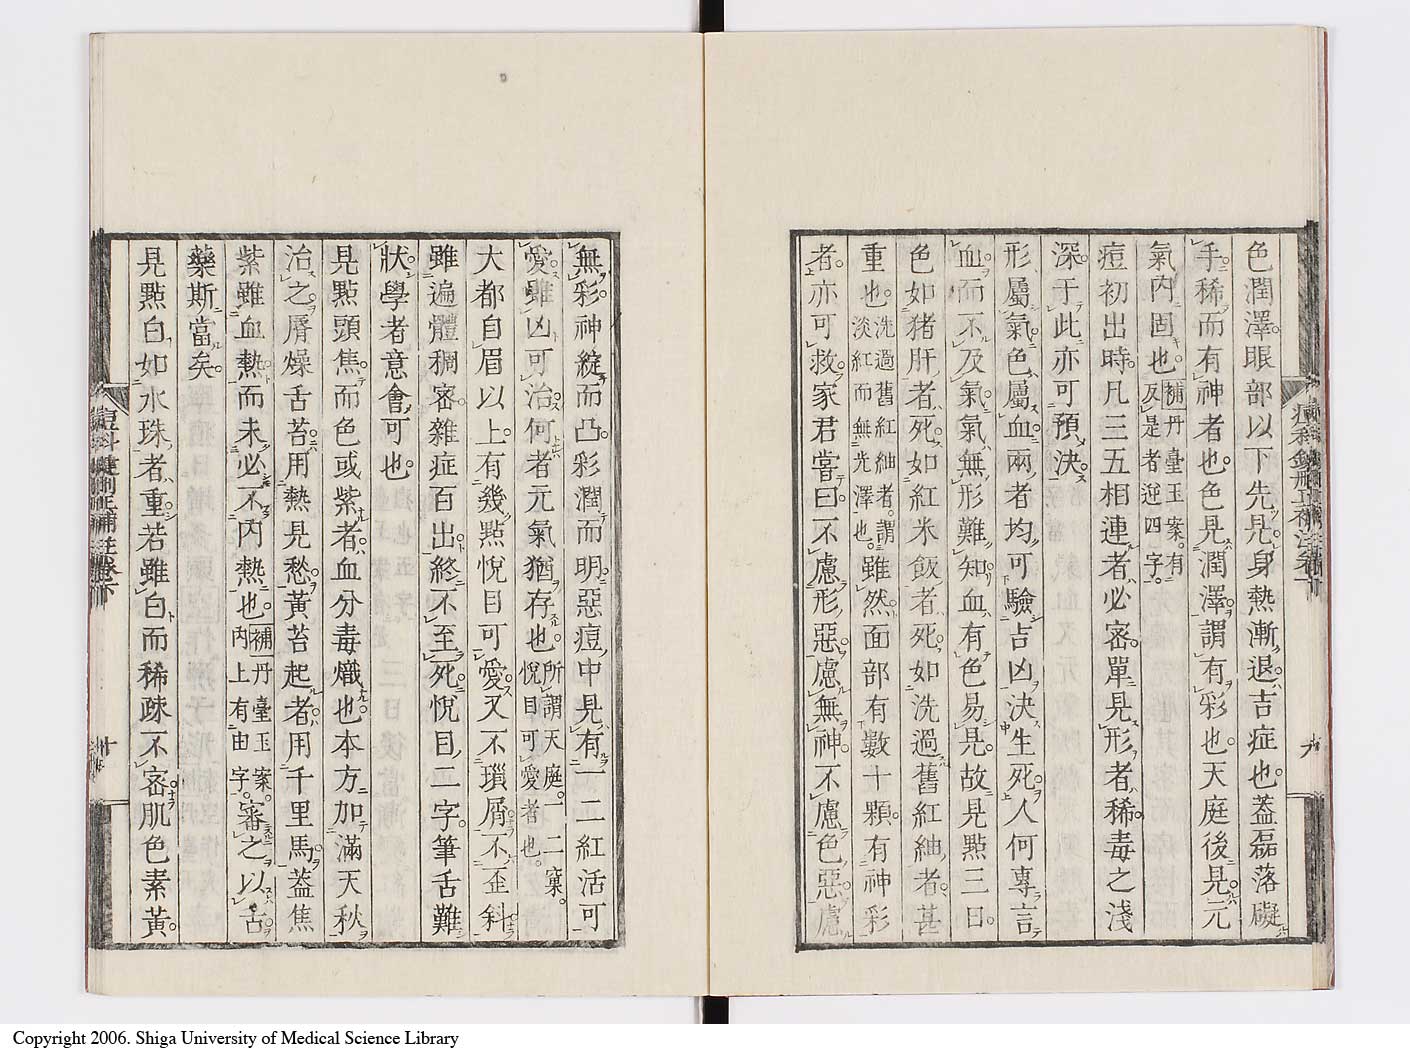 色潤澤眼部以下先見身熱漸退吉症也葢磊落礙
手稀而有神者也色見潤澤謂有彩也天庭後見元
氣内固也補丹臺玉案有
及是者逆四字
痘初出時凡三五相連者必密單見形者稀毒之淺
深于此亦可預決
形屬氣色屬血兩者均可驗吉凶決生死人何專言
血而不及氣氣無形難知血有色易見故見點三日
色如猪肝者死如紅米飯者死如洗過舊紅紬者甚
重也洗過舊紅紬者謂
淡紅而無光澤也雖然面部有數十顆有神彩
者亦可救家君嘗曰不慮形惡慮無神不慮色惡慮
無彩神綻而凸彩潤而明惡痘中見有一二紅活可
愛雖凶可治何者元氣猶存也所謂天庭一二窠
悅目可愛者也
大都自眉以上有幾點悅目可愛又不瑣屑不歪斜
雖遍體稠密雜症百出終不至死悅目二字筆舌難
狀學者意會可也
見點頭焦而色或紫者血分毒熾也本方加滿天秋
治之脣燥舌苔用熱見愁黃苔起者用千里馬葢焦
紫雖血熱而未必不内熱也補丹臺玉案
内上有由字審之以占
藥斯當矣
見點白如水珠者重若雖白而稀疎不密肌色素黃
痘科鍵刪正補註卷下 十
Copyright 2006. Shiga University of Medical Science Library